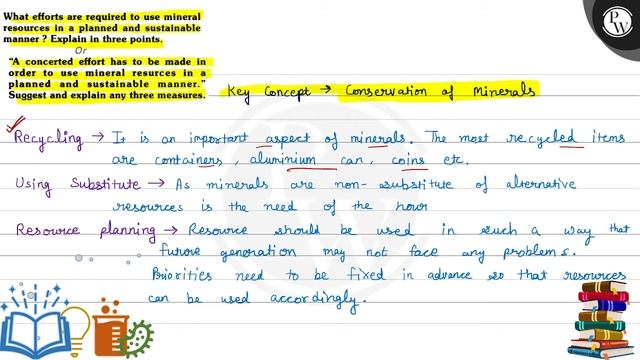 What efforts are required to use mineral
resources in a planned and sustainable
manner ? Explain in three points.
Or
"A concerted effort has to be made in
order to use mineral resurces in a
planned and sustainable manner."
Suggest and explain any three measures.
Key Concept → Conservation of Minerals
Recycling → It is an important aspect of minerals. The most recycled items
are containers, aluminium can, coins etc.
Using Substitute → As minerals are non-substitute of alternative
resources is the need of the hour
Resource planning → Resource should be used in such a way that
future generation may not face any problems.
Priorities need to be fixed in advance so that resources
can be used accordingly.
PW